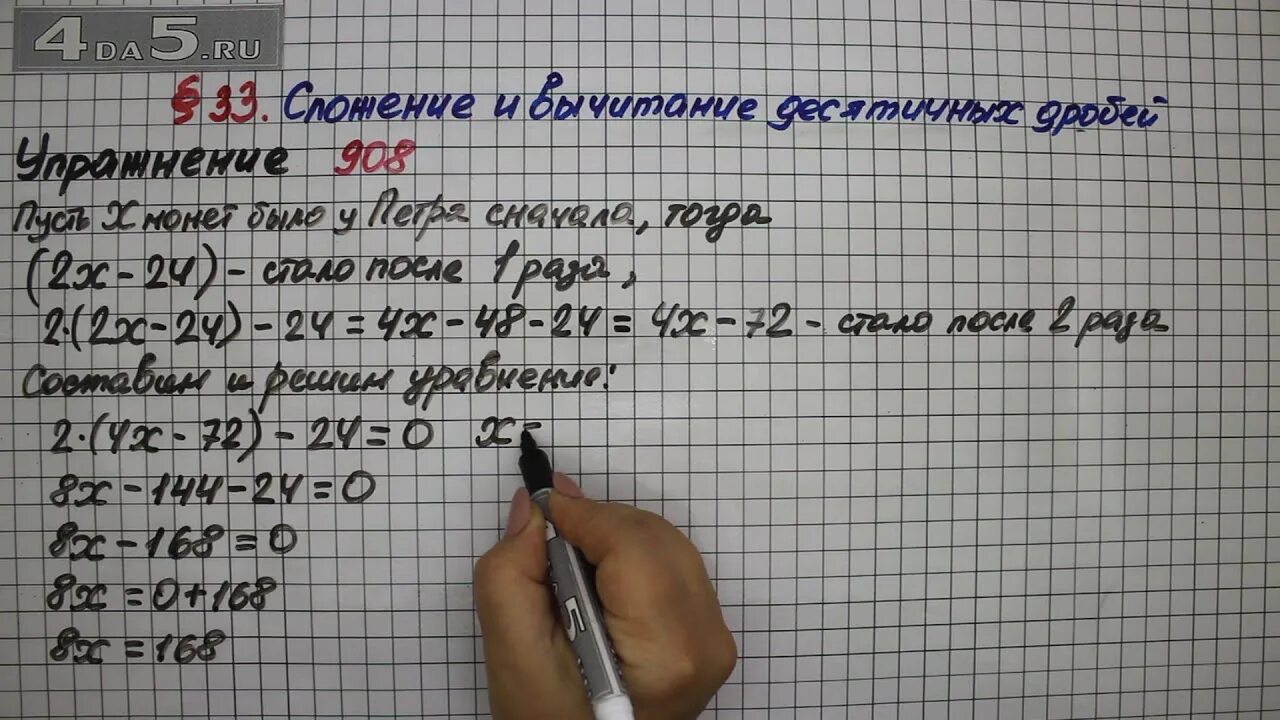 4DA5.RU
§ 33. Сложение и вычитание десятичных дробей
Упражнение 908
Пусть х монет было у Петра сначала, тогда
(2х - 24) - стало после 1 раза,
2·(2х - 24) - 24 = 4х - 48 - 24 = 4х - 72 - стало после 2 раза
Составим и решим уравнение:
2·(4х - 72) - 24 = 0 х =
8х - 144 - 24 = 0
8х - 168 = 0
8х = 0 + 168
8х = 168
5